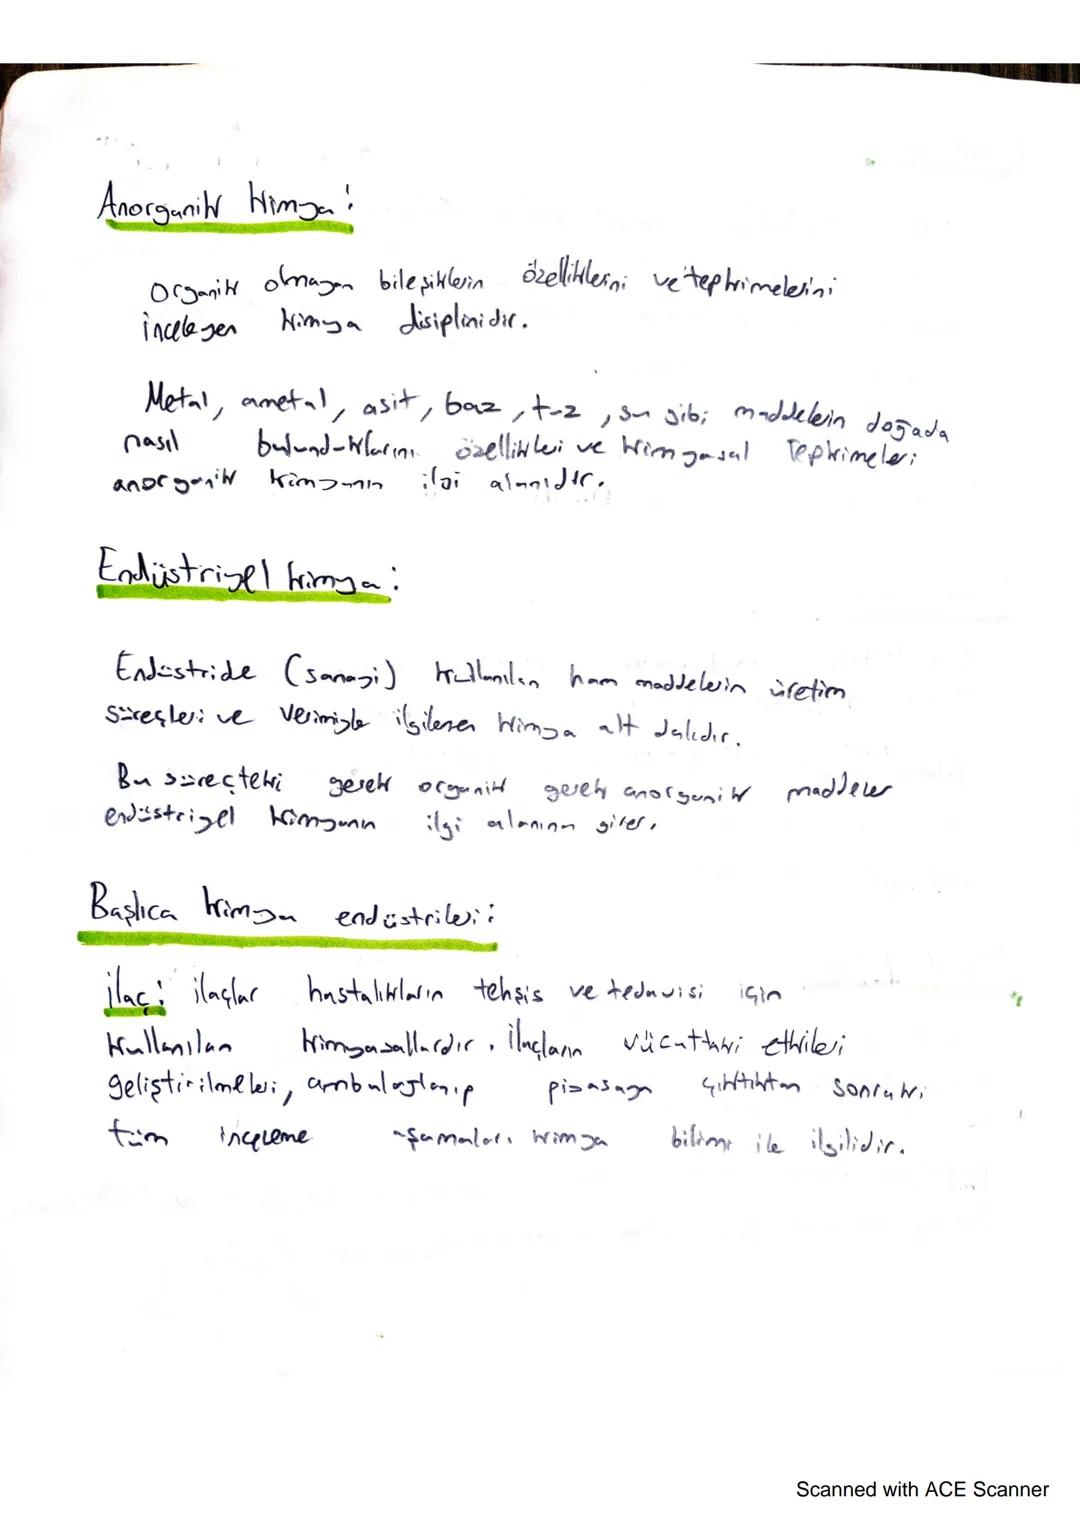 Anorganik Kimya:
Organik olmayan bileşiklerin özelliklerini ve tepkimelerini
inceleyen kimya disiplinidir.
Metal, ametal, asit, baz, tuz, su gibi maddelerin doğada
nasıl bulunduklarını özellikleri ve kimyasal Tepkimeleri
anorganik kimyanın ilgi alanıdır.
Endüstriyel kimya:
Endüstride (sanayi) kullanılan ham maddelerin üretim
süreçleri ve verimiyle ilgilenen kimya alt dalıdır.
Bu süreçteki gerek organik gerek anorganik maddeler
endüstriyel kimyanın ilgi alanına girer.
Başlıca kimya endüstrileri:
İlaç: ilaçlar hastalıkların tehşis ve tedavisi için
kullanılan kimyasallardır. İlaçların vücuttaki etkileri
geliştirilmeleri, ambulajlanıp piyasaya çıktıktan sonraki
tüm inceleme aşamaları kimya bilimi ile ilgilidir.
Scanned with ACE Scanner